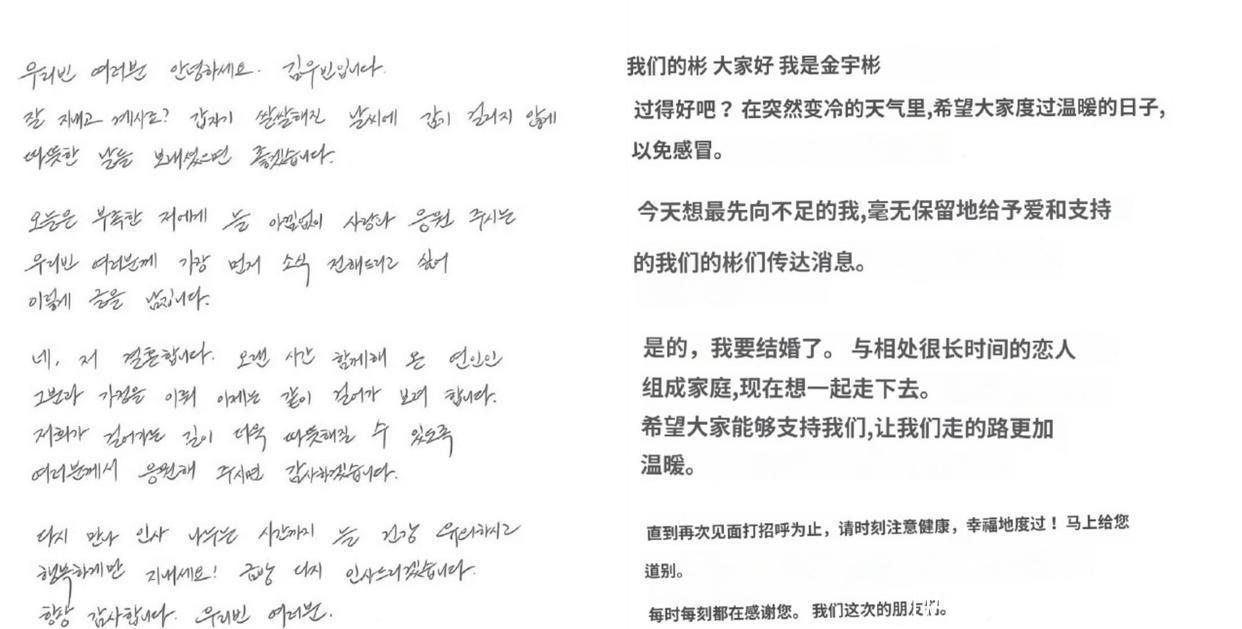 우리빈 여러분 안녕하세요. 김우빈입니다.
잘 지내고 계시죠? 갑자기 쌀쌀해진 날씨에 감기 걸리지 않게
따뜻한 날들 보내셨으면 좋겠습니다.
오늘은 부족한 저에게 늘 아낌없이 사랑과 응원 주시는
우리빈 여러분께 가장 먼저 소식 전해드리고 싶어
이렇게 글을 남깁니다.
네, 저 결혼합니다. 오랜 시간 함께해 온 연인인
그분과 가정을 이뤄 이제는 같이 걸어가 보려 합니다.
저희가 걸어가는 길이 더욱 따뜻해질 수 있도록
여러분께서 응원해 주시면 감사하겠습니다.
다시 만나 인사 나누는 시간까지 늘 건강 유의하시고
행복하게만 지내세요! 금방 다시 인사드리겠습니다.
항상 감사합니다. 우리빈 여러분.
我们的彬 大家好 我是金宇彬
过得好吧？在突然变冷的天气里,希望大家度过温暖的日子,
以免感冒。
今天想最先向不足的我,毫无保留地给予爱和支持
的我们的彬们传达消息。
是的，我要结婚了。 与相处很长时间的恋人
组成家庭,现在想一起走下去。
希望大家能够支持我们,让我们走的路更加
温暖。
直到再次见面打招呼为止，请时刻注意健康，幸福地度过！马上给您
道别。
每时每刻都在感谢您。 我们这次的朋友们。